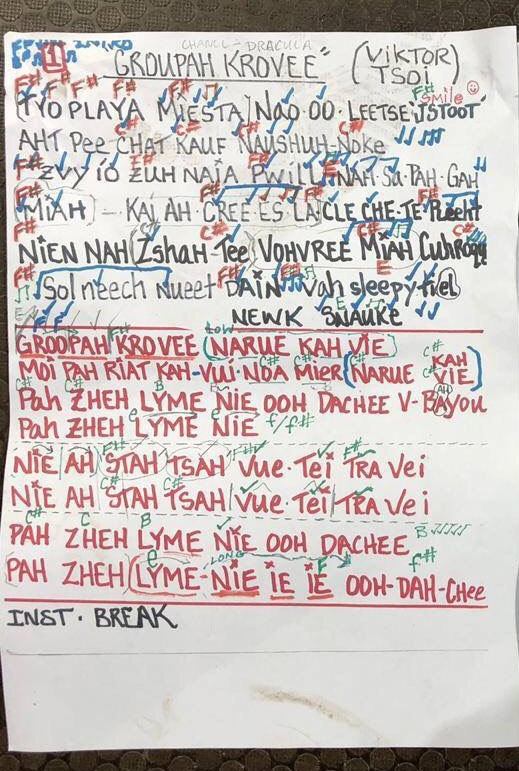 1 CHANEL - DRACULA
"GROUPAH KROVEE" (ViKTOR TSOi)
F# F# F# F# F# Smile
(TYO PLAYA MiESTA) NaO·OO·LEETSE 'JSTOOT'
C# C# C# C#
AHT Pee CHAT KAUF NAUSHUH-Noke
F# E
ZVY iO ZUH NAJA PWiLL NAH·Sa·PAH·GAH
F# F# F#
(MiAH) - KAJ AH·CREE·ES·LA CLE CHE·TE·
F# C# C# C#
NiEN NAH (ZshaH-Tee) VOHVREE MiAH
F# E
Sol neech Nueet DAiN Vah sleepy·
E E
NEWK SNAUKE
F# LOW
GROOPAH KROVEE (NARUE KAH ViE)
C# C# C#
MOi PAH RiAT KAH-Vui·NDA MiER (NARUE KAH ViE)
C# C# B E AH
Pah ZHEH LYME NiE OOH DACHEE V-BAYou
e e
Pah ZHEH LYME NiE f/f#
F# F# F#
NiE AH STAH TSAH Vue·Tei TRA Vei
C# C#
NiE AH STAH TSAH Vue·Tei TRA Vei
C# C B
PAH ZHEH LYME NiE OOH DACHEE B
e LONG F f#
PAH ZHEH (LYME-NiE iE iE OOH-DAH-CHee
INST. BREAK